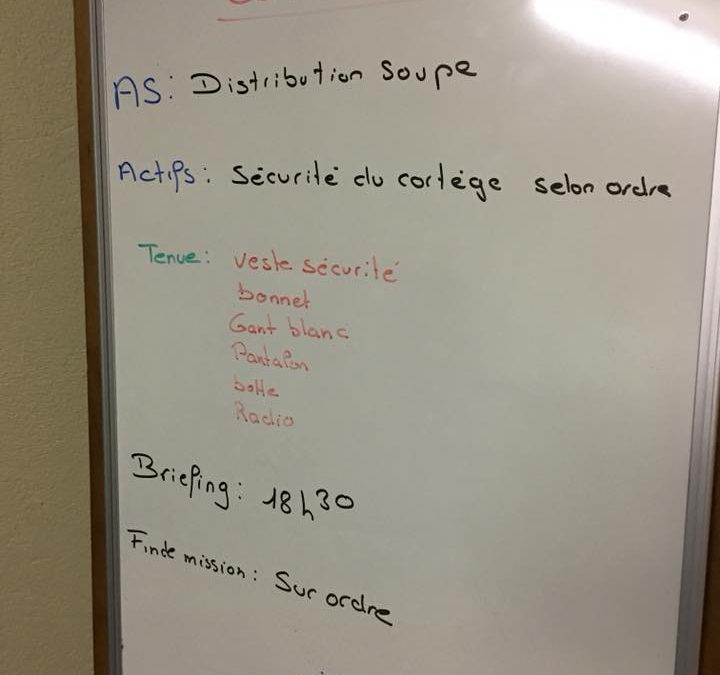 AS: Distribution soupe
Actifs: Sécurité du cortége selon ordre
Tenue: veste sécurité
bonnet
Gant blanc
Pantalon
botte
Radio
Briefing: 18h30
Fin de mission: Sur ordre